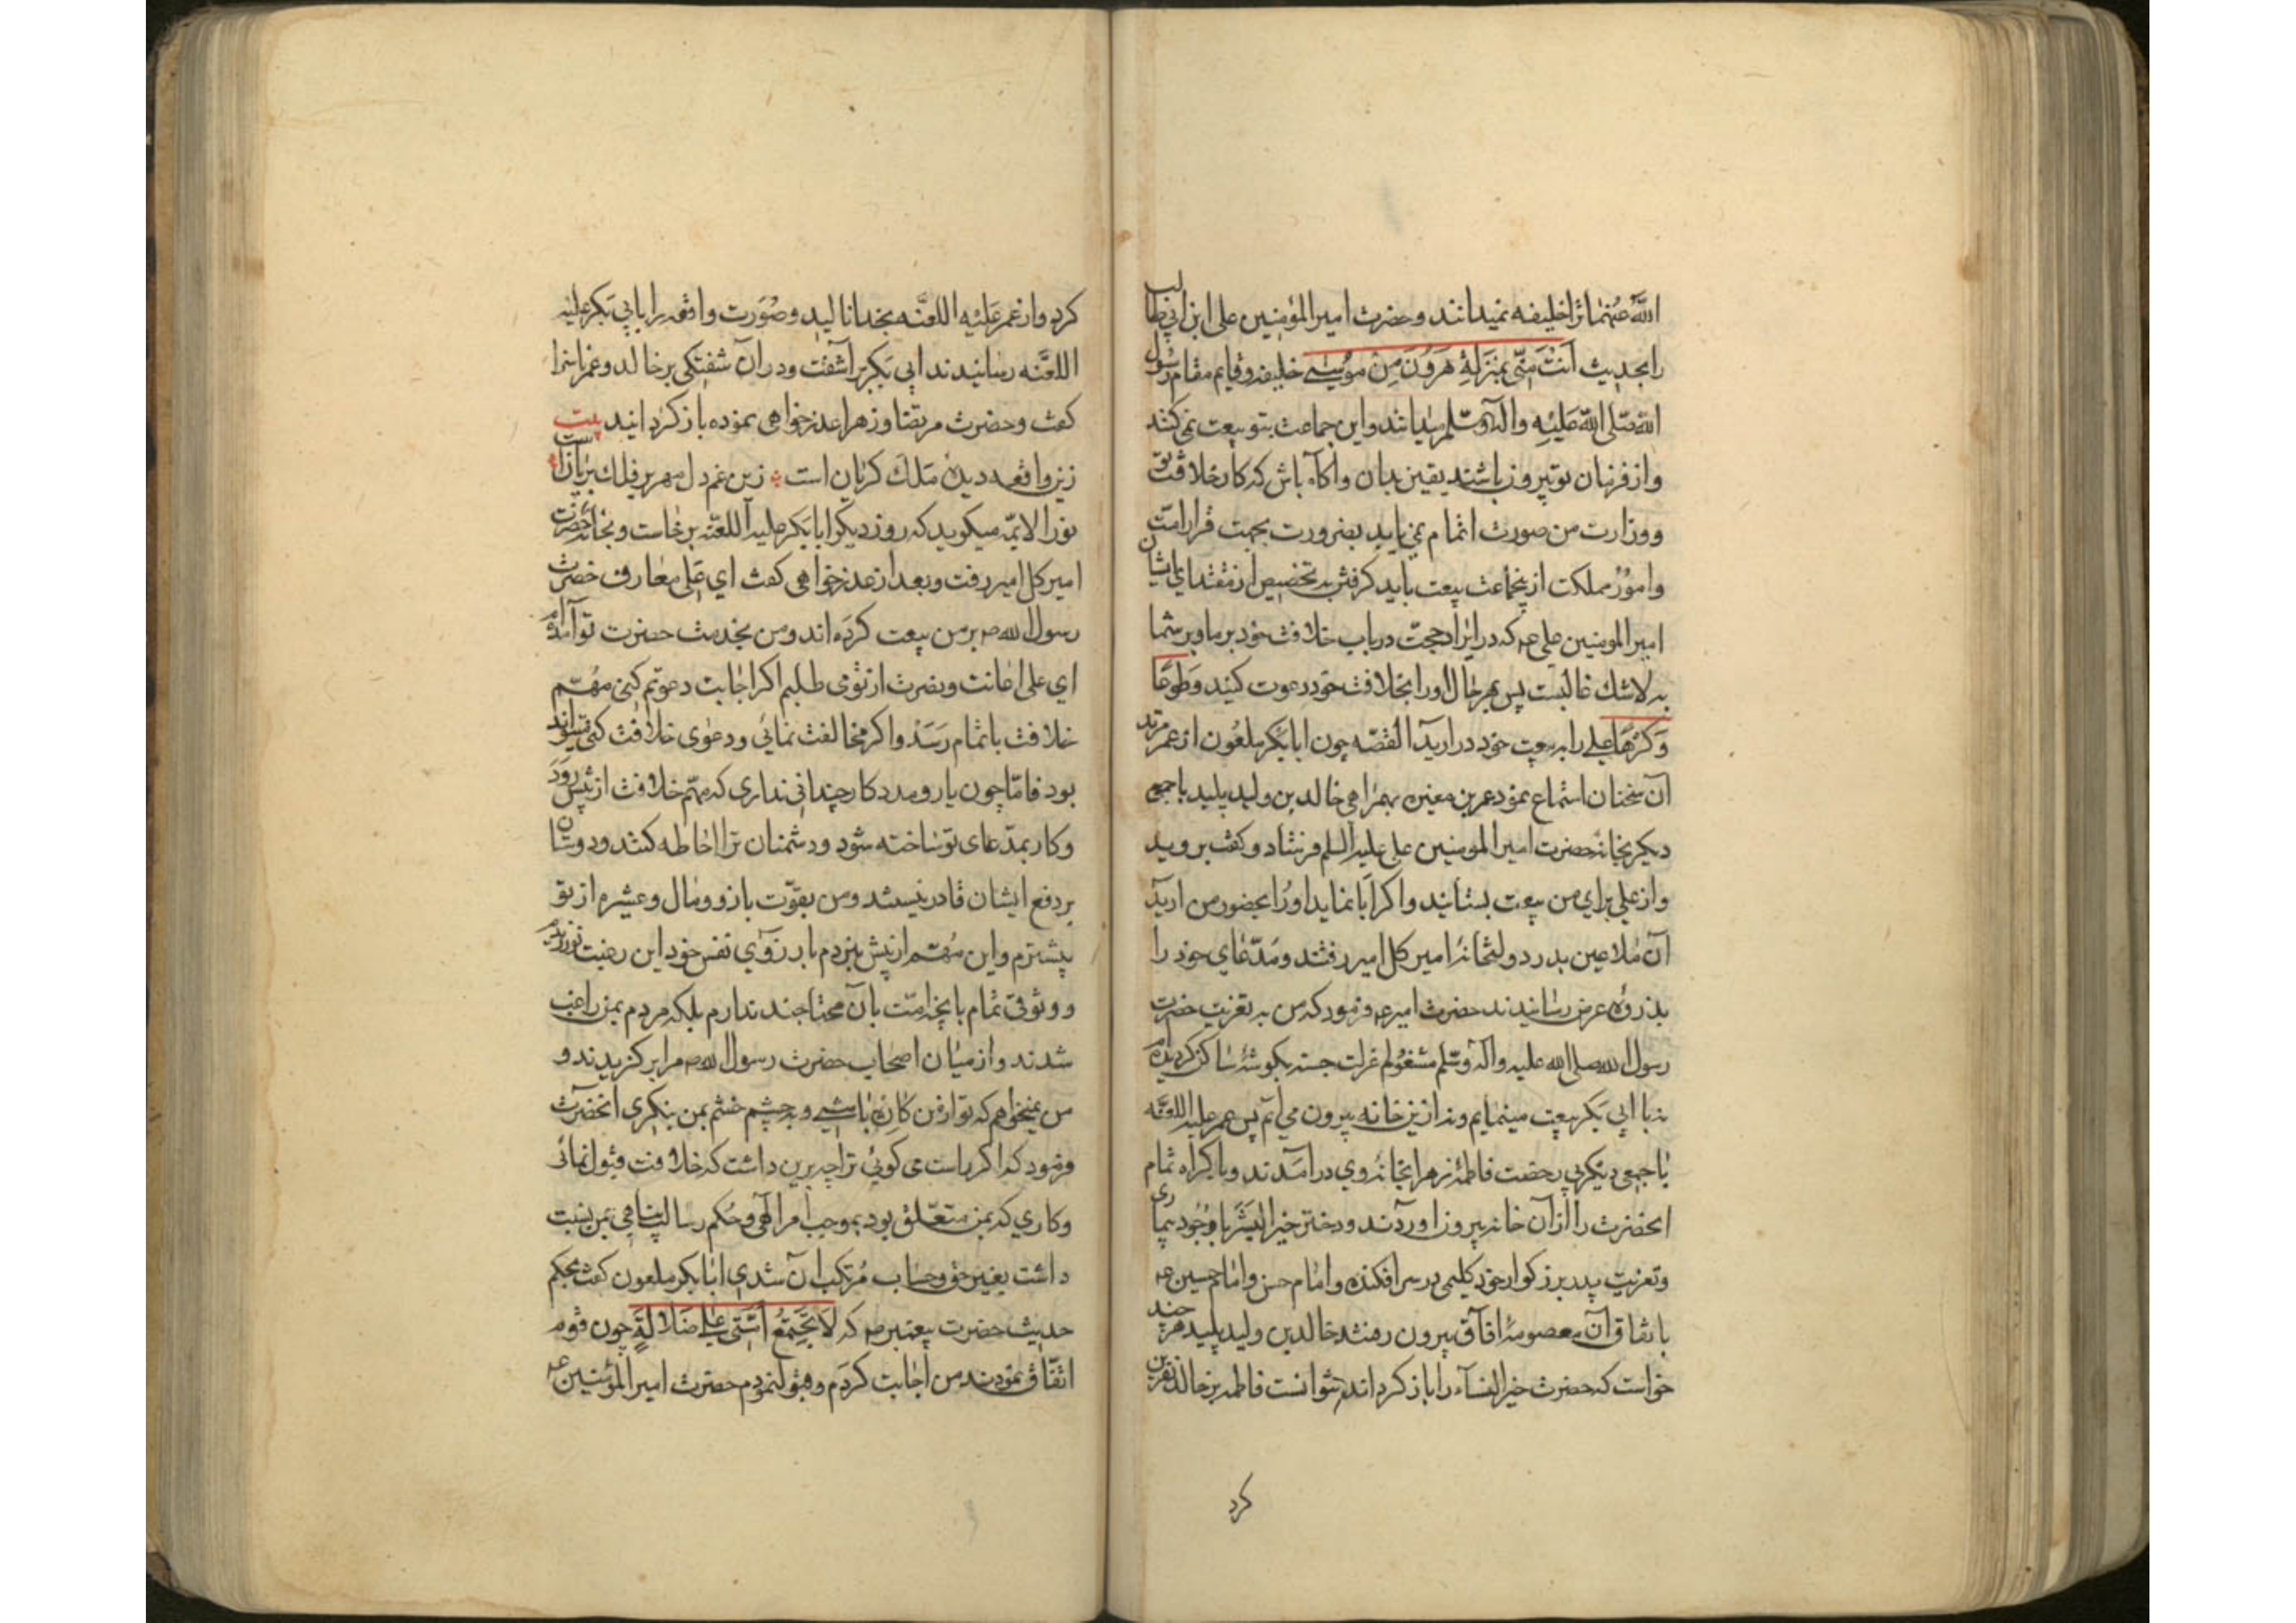 الله عنهما ترا خلیفه نمیدانند و حضرت امیر المؤمنین علی ابن ابی طالب
را بحدیث اَنْتَ مِنّی بمَنزَلَةِ هَرُونَ مِنْ مُوسٰی خلیفه و قایم مقام رسول
الله صلی الله عَلَیْهِ وآله وسلم میدانند و این جماعت بتو بیعت نمی کنند
و از فرمان تو بیرون باشند یقین بدان و آکاه باش که کار خلافت تو
و وزارت من صورت اتمام نمی یابد بضرورت بجهت قرار امت
و امور مملکت ازینجماعت بیعت باید کرفتن به تخصیص از مقتدای ایشان
امیر المومنین علی عه که در ایراد حجت در باب خلافت خود بر ما و بر شما
به لاشك غالبست پس بهر حال او را بخلافت خود دعوت کنید و طَوعًا
وَ کَرْهًا علی را به بیعت خود در ارید القصّه چون ابابکر ملعون از عمر مرتد
آن سخنان استماع نمود عمر بن مغیره بهمراهی خالد بن ولید پلید با جمعی
دیکر بخانه حضرت امیر المومنین علی علیه السلم فرستاد و کفت بروید
و از علی برای من بیعت بستانید و اکر ابا نماید او را بحضور من ارید
آن ملاعین بدر دولتخانه امیر کل امیر رفتند و مدّعای خود را
بذروه عرض رسانیدند حضرت امیر عه فرمود که من به تعزیت حضرت
رسول الله صلی الله علیه وآله وسلم مشغولم عزلت جسته بکوشهٔ ساکن کردیده ام
نه با ابی بکر بیعت مینمایم و نه ازین خانه بیرون می آیم پس عمر علیه اللعنه
با جمعی دیکر بی رخصت فاطمه زهرا بخانه وی در آمدند و باکراه تمام
انحضرت را از آن خانه بیرون اوردند و دختر خیر البشر با وجود بیماری
و تعزیت پدر بزرکوار خود کلیمی بر سر افکنده و امام حسن و امام حسین عه
باتفاق آن معصومهٔ افاق بیرون رفتند خالد بن ولید پلید هر چند
خواست که حضرت خیر النساء را باز کرداند نتوانست فاطمه بر خالد نفرین
کرد
کرد و از عمر عَلَیْهِ اللعنَه بخدا نالید و صُورت واقعه را بابی بَکر علیه
اللعنَه رسانیدند ابی بَکر براشفت و در آن شفتکی بر خالد و عمر ناسزا
کفت و حضرت مرتضا و زهرا عذر خواهی نموده باز کردانید بیت
زین واقعه دیدۀ مَلَك کریان است زین غم دل مهر بر فلك بریانست
نور الائمّه میکوید که روز دیکر ابابکر علیه اللعنه برخاست و بخانه حضرت
امیر کل امیر رفت و بعد از عذر خواهی کفت ای علی معارف حضرت
رسول الله صه بر من بیعت کرده اند و من بخدمت حضرت تو آمده ام
ای علی اعانت و نصرت از تو می طلبم اکر اجابت دعوتم کنی مهُمّ
خلافت باتمام رَسَدْ و اکر مخالفت نمائی و دعوی خلافت کنی میتواند
بود فامّا چون یار و مدد کار چندانی نداری که مهمّ خلافت از پیش رود
و کار بمدّعای تو ساخته شود و دشمنان ترا احاطه کنند و دوستان
بر دفع ایشان قادر نیستند و من بقوّت بازو و مال و عشیره از تو
بیشترم و این مُهمّ از پیش نبردم بارزوی نفس خود این رغبت نورزیدم
و وثوقی تمام بانچه امت بآن محتاجند ندارم بلکه مردم بمن راغب
شدند و از میان اصحاب حضرت رسول الله صه مرا بر کزیدند و
من نمیخواهم که تو از من کاره باشی و به چشم خشم بمن بنکری انحضرت
فرمود که اکر راست می کوئی ترا چه برین داشت که خلافت قبول نمائی
و کاری که بمن متعّلق بود بموجب امر الهی و حُکم رسالت پناهی بمن نسبت
داشت بغیر حق و حساب مُرتکب ان شدی ابابکر ملعون کفت بحکم
حدیث حضرت پیغمبر صه که لَا تَجْتَمِعُ اُمَّتی عَلٰی ضَلَالَةٍ چون قوم
اتفّاق نمودند من اجابت کردم و قبول نمودم حضرت امیر المؤمنین عه